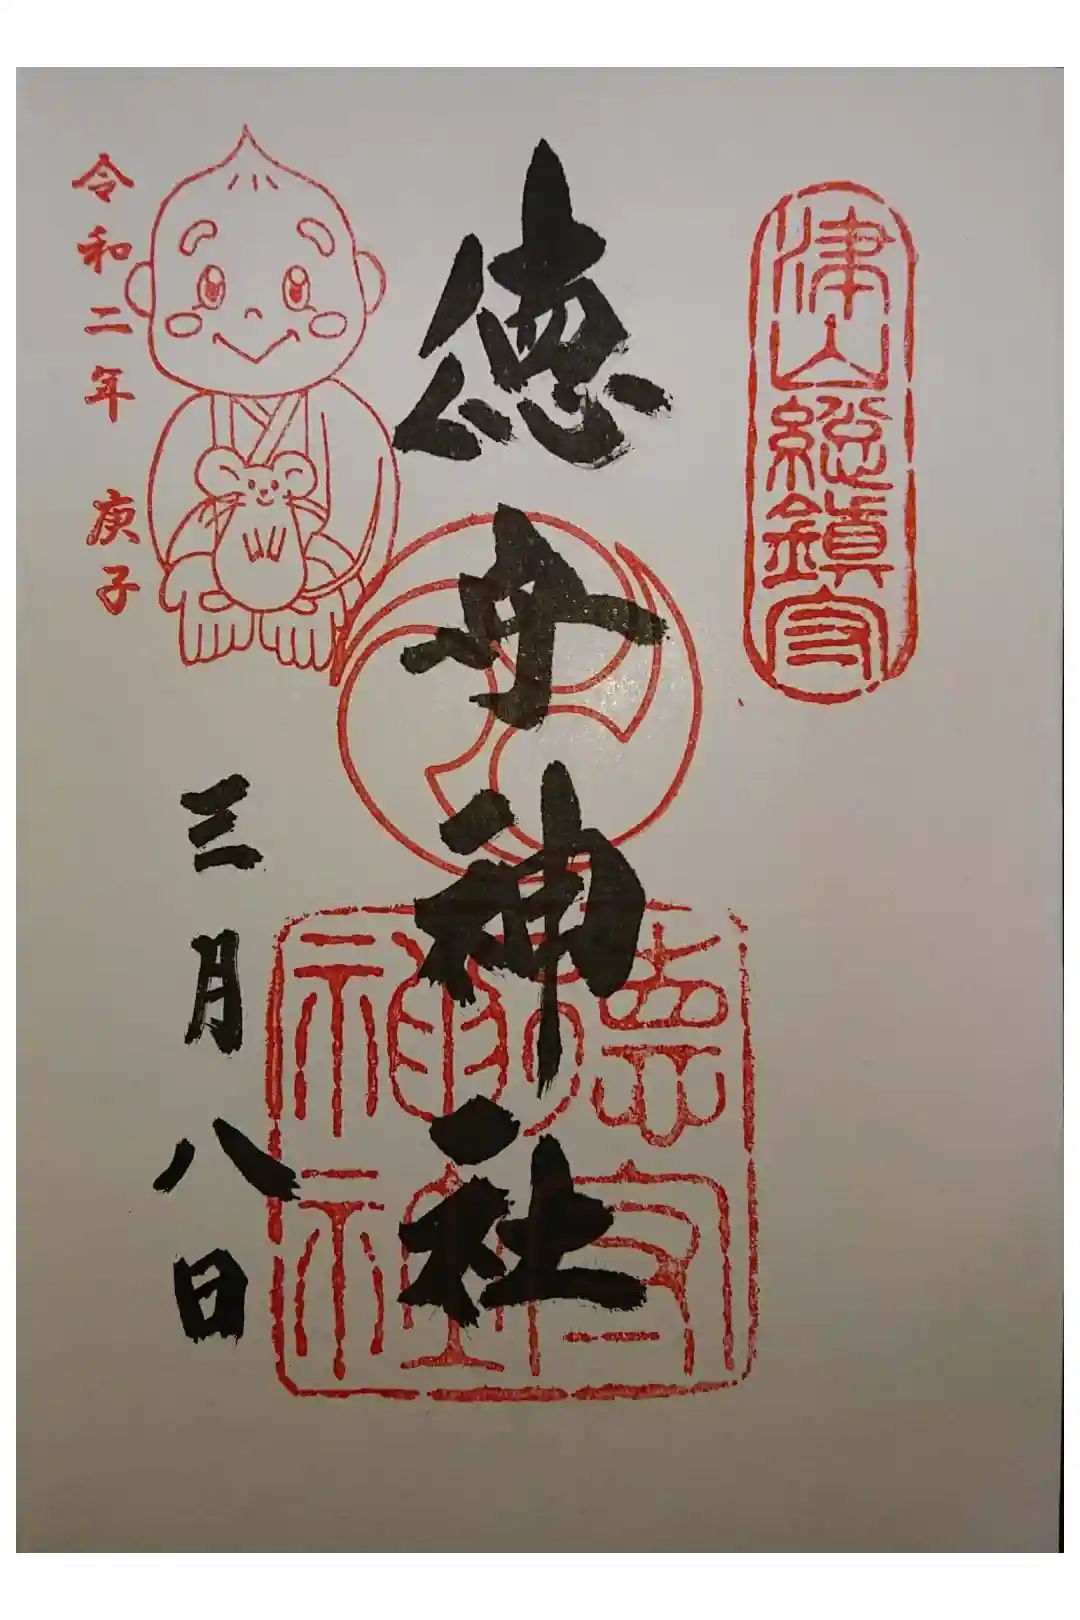 津山総鎮守
徳守神社
徳守神社
令和二年 庚子
三月八日